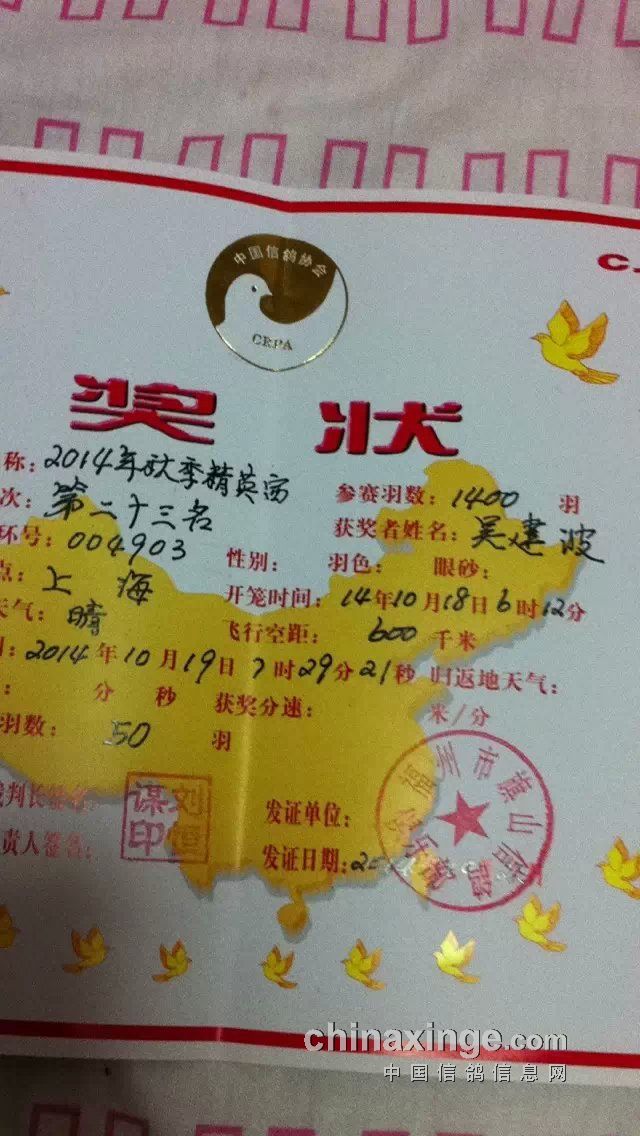 中国信鸽协会
CRPA
奖状
称：2014年秋季精英赛
参赛羽数：1400羽
次：第二十三名
获奖者姓名：吴建波
环号：004903
性别： 羽色： 眼砂：
点：上海
开笼时间：14年10月18日6时12分
天气：晴
飞行空距：600千米
：2014年10月19日7时29分21秒 归返地天气：
： 分 秒 获奖分速： 米/分
羽数：50羽
裁判长签名：
刘恒谋印
发证单位：
责人签名：
发证日期：
州市旗山
chinaxinge.com
中国信鸽信息网